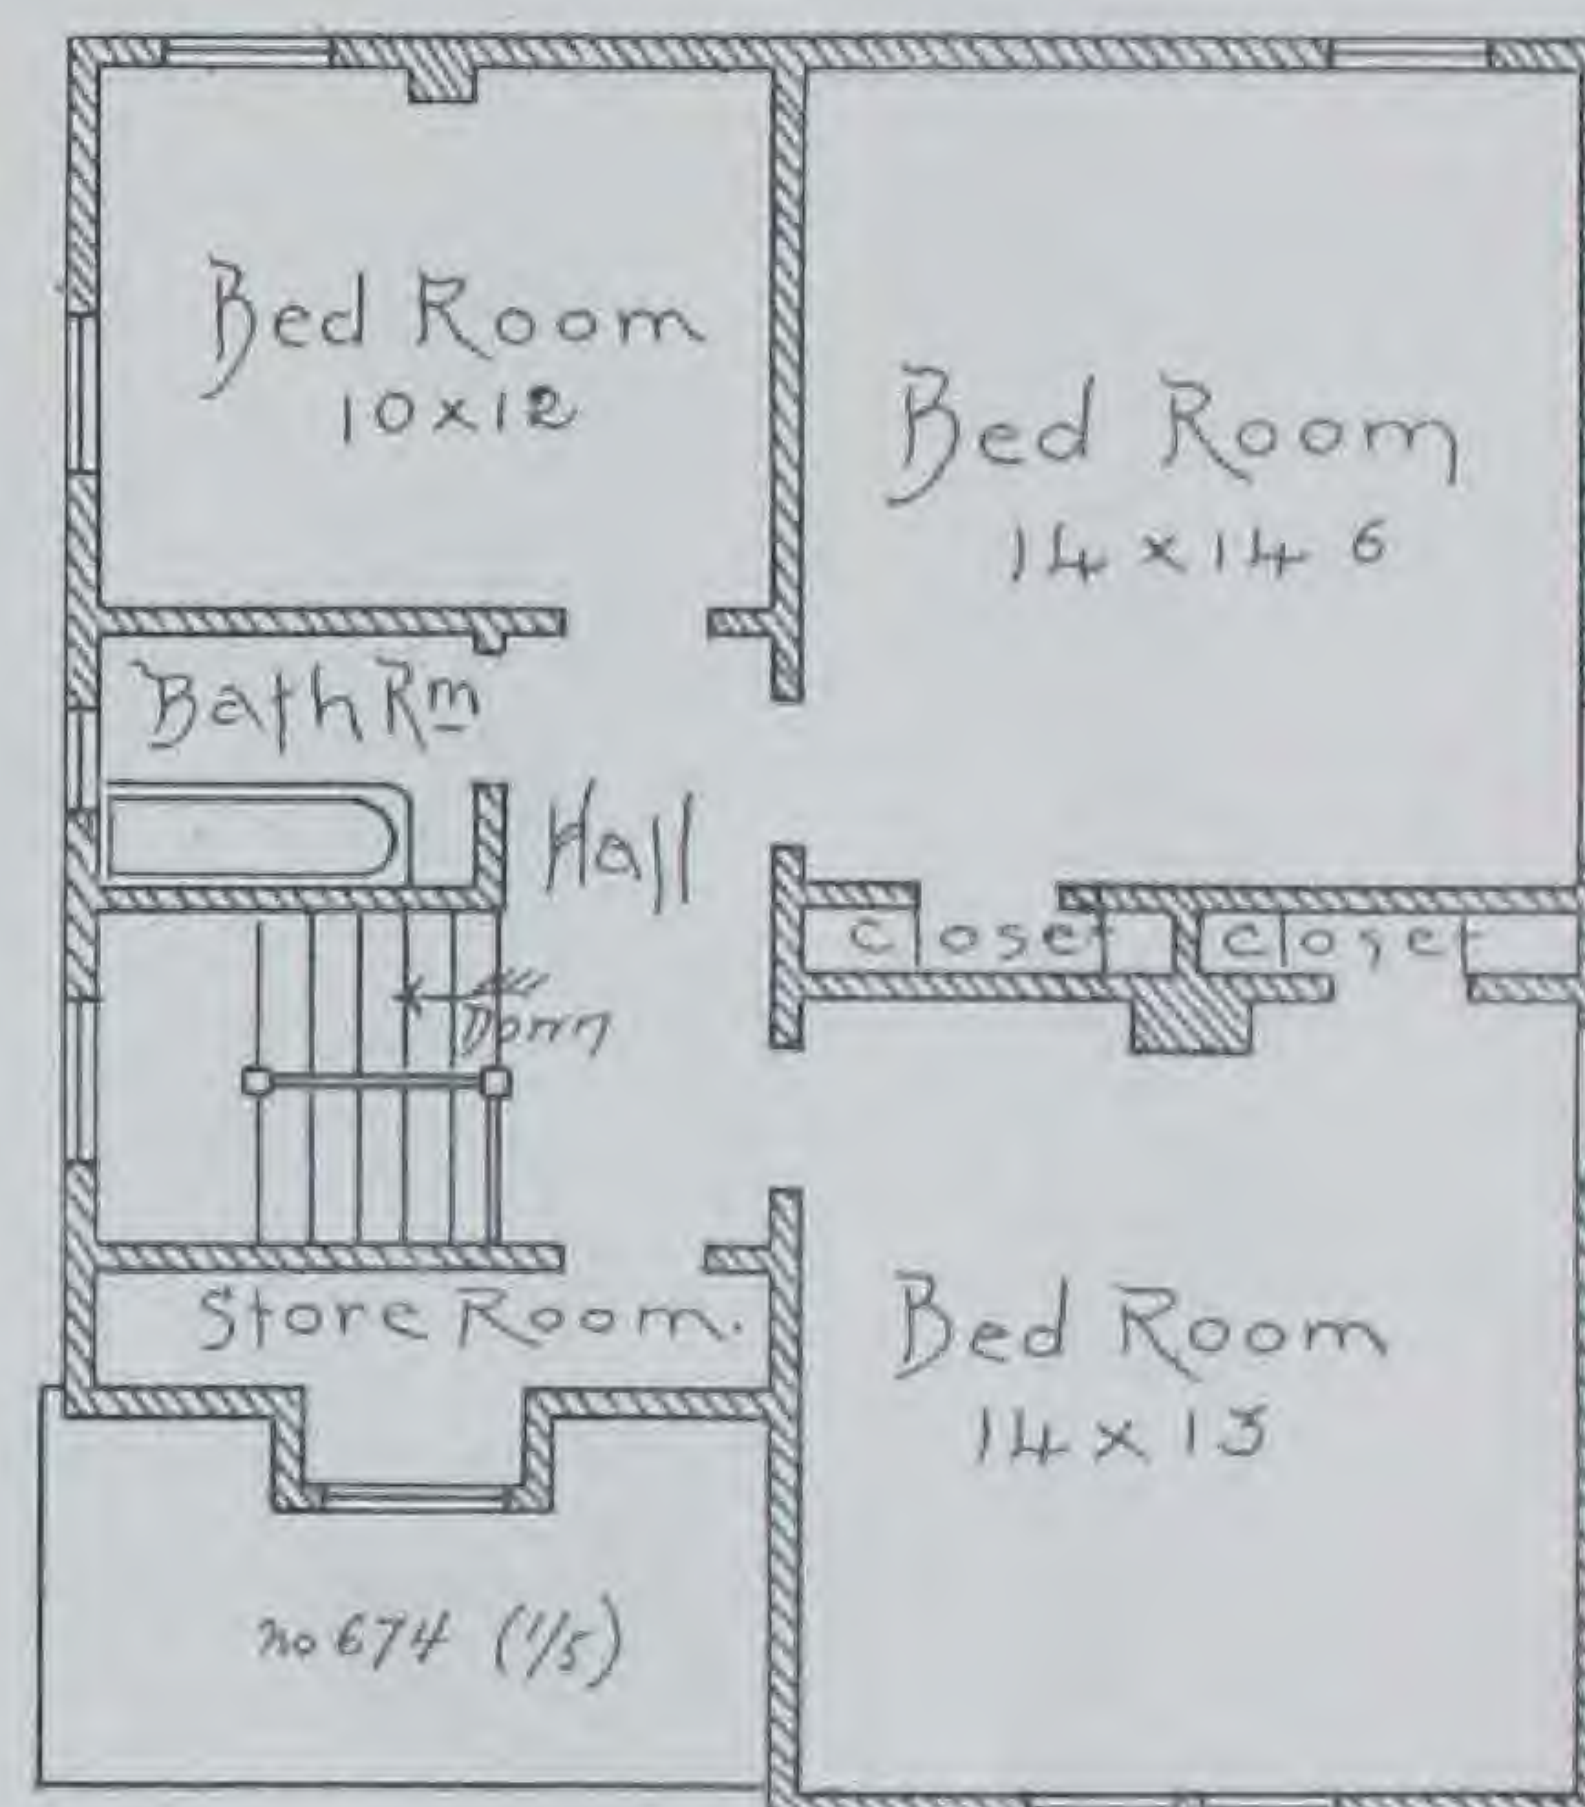 Bed Room
10 x 12
Bed Room
14 x 14 6
Bath Rm
Hall
Closet
Closet
Down
Store Room.
Bed Room
14 x 13
no 674 (1/5)